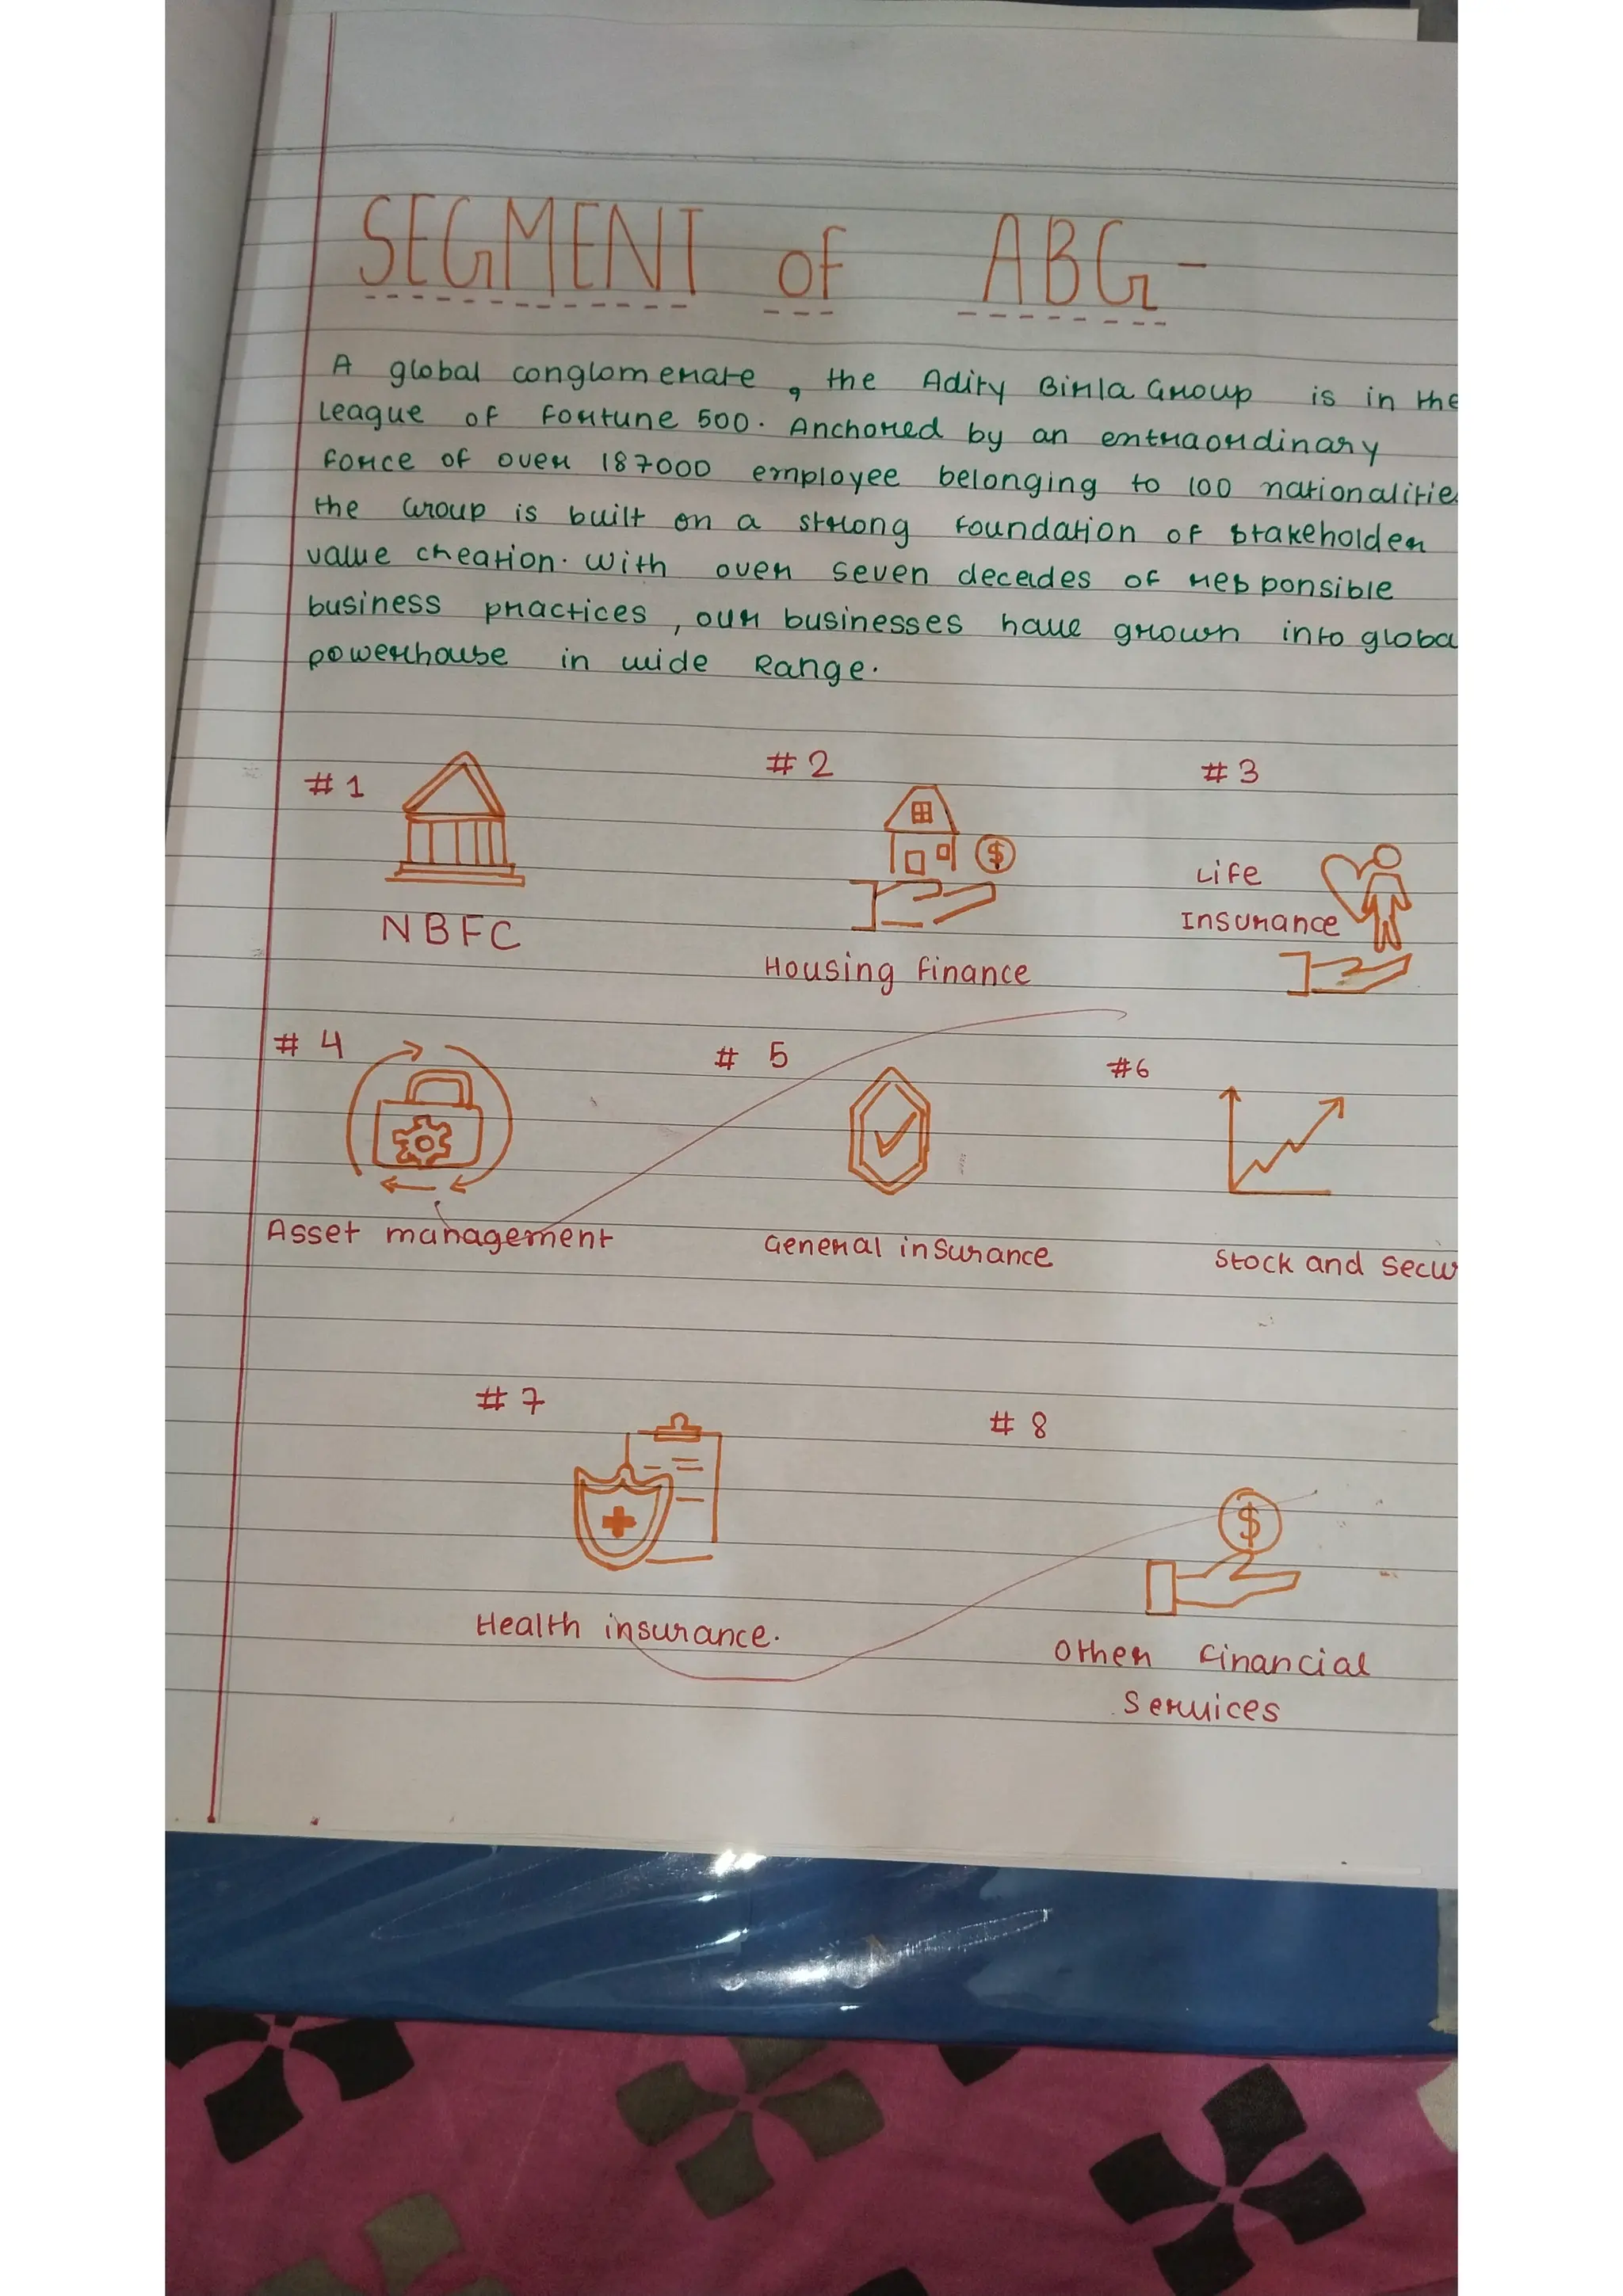 SEGMENT of ABG-
A global conglomerate, the Adity Birla Group is in the
League of Fortune 500. Anchored by an entraordinary
force of over 187000 employee belonging to 100 nationalitie
the Group is built on a strong foundation of stakeholder
value creation. With over seven decades of responsible
business practices, our businesses have grown into globa
powerhouse in wide Range.
#1
#2
#3
NBFC
Housing finance
Life
Insurance
#4
#5
#6
Asset management
General insurance
Stock and Secu
#7
#8
Health insurance.
Other financial
Services